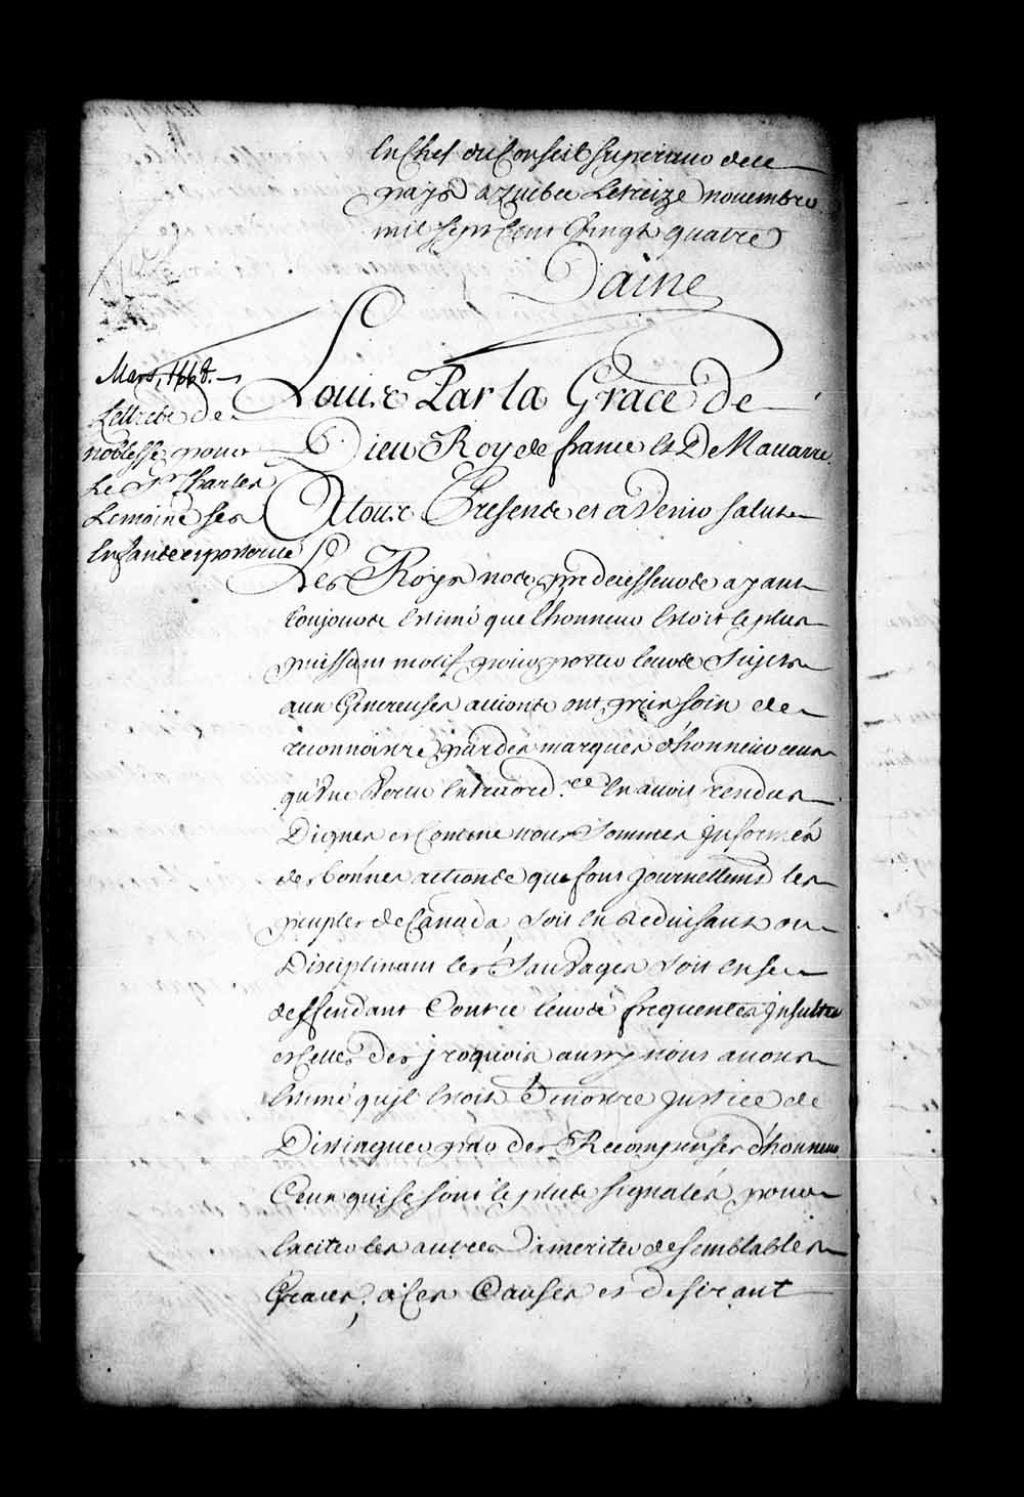 En Chef du Conseil Superieur de ce
pays a Quebec Le treize novembre
mil sept Cent Vingt quatre
Daine
Mars, 1668.
Lettres de
noblesse pour
Le Sr. Charles
Lemoine ses
Enfants et posterité
Louis Par la Grace de
Dieu Roy de france Et De Nauarre
A tous Presents et a Venir salut
Les Roys nos predecesseurs ayant
toujours Estimé que lhonneur Estoit le plus
puissant motif pour porter leurs Sujets
aux Genereuses actions ont pris soin de
reconnoistre par des marques d'honneur ceux
qu'Une Vertu Extraord.re En avoit rendus
Dignes et Comme nous Sommes Informés
des bonnes actions que font Journellement les
peuples de Canada soit En Reduisant ou
Disciplinant les Sauvages soit En se
deffendant Contre leurs frequentes Insultes
et Celles des jroquois aussy nous auons
Estimé qu'jl Estoit De nostre Justice de
Distinguer par des Recompenses d'honneur
Ceux qui se sont le plus signalés pour
Exciter les autres a meriter de semblables
Graces, a Ces Causes et desirant